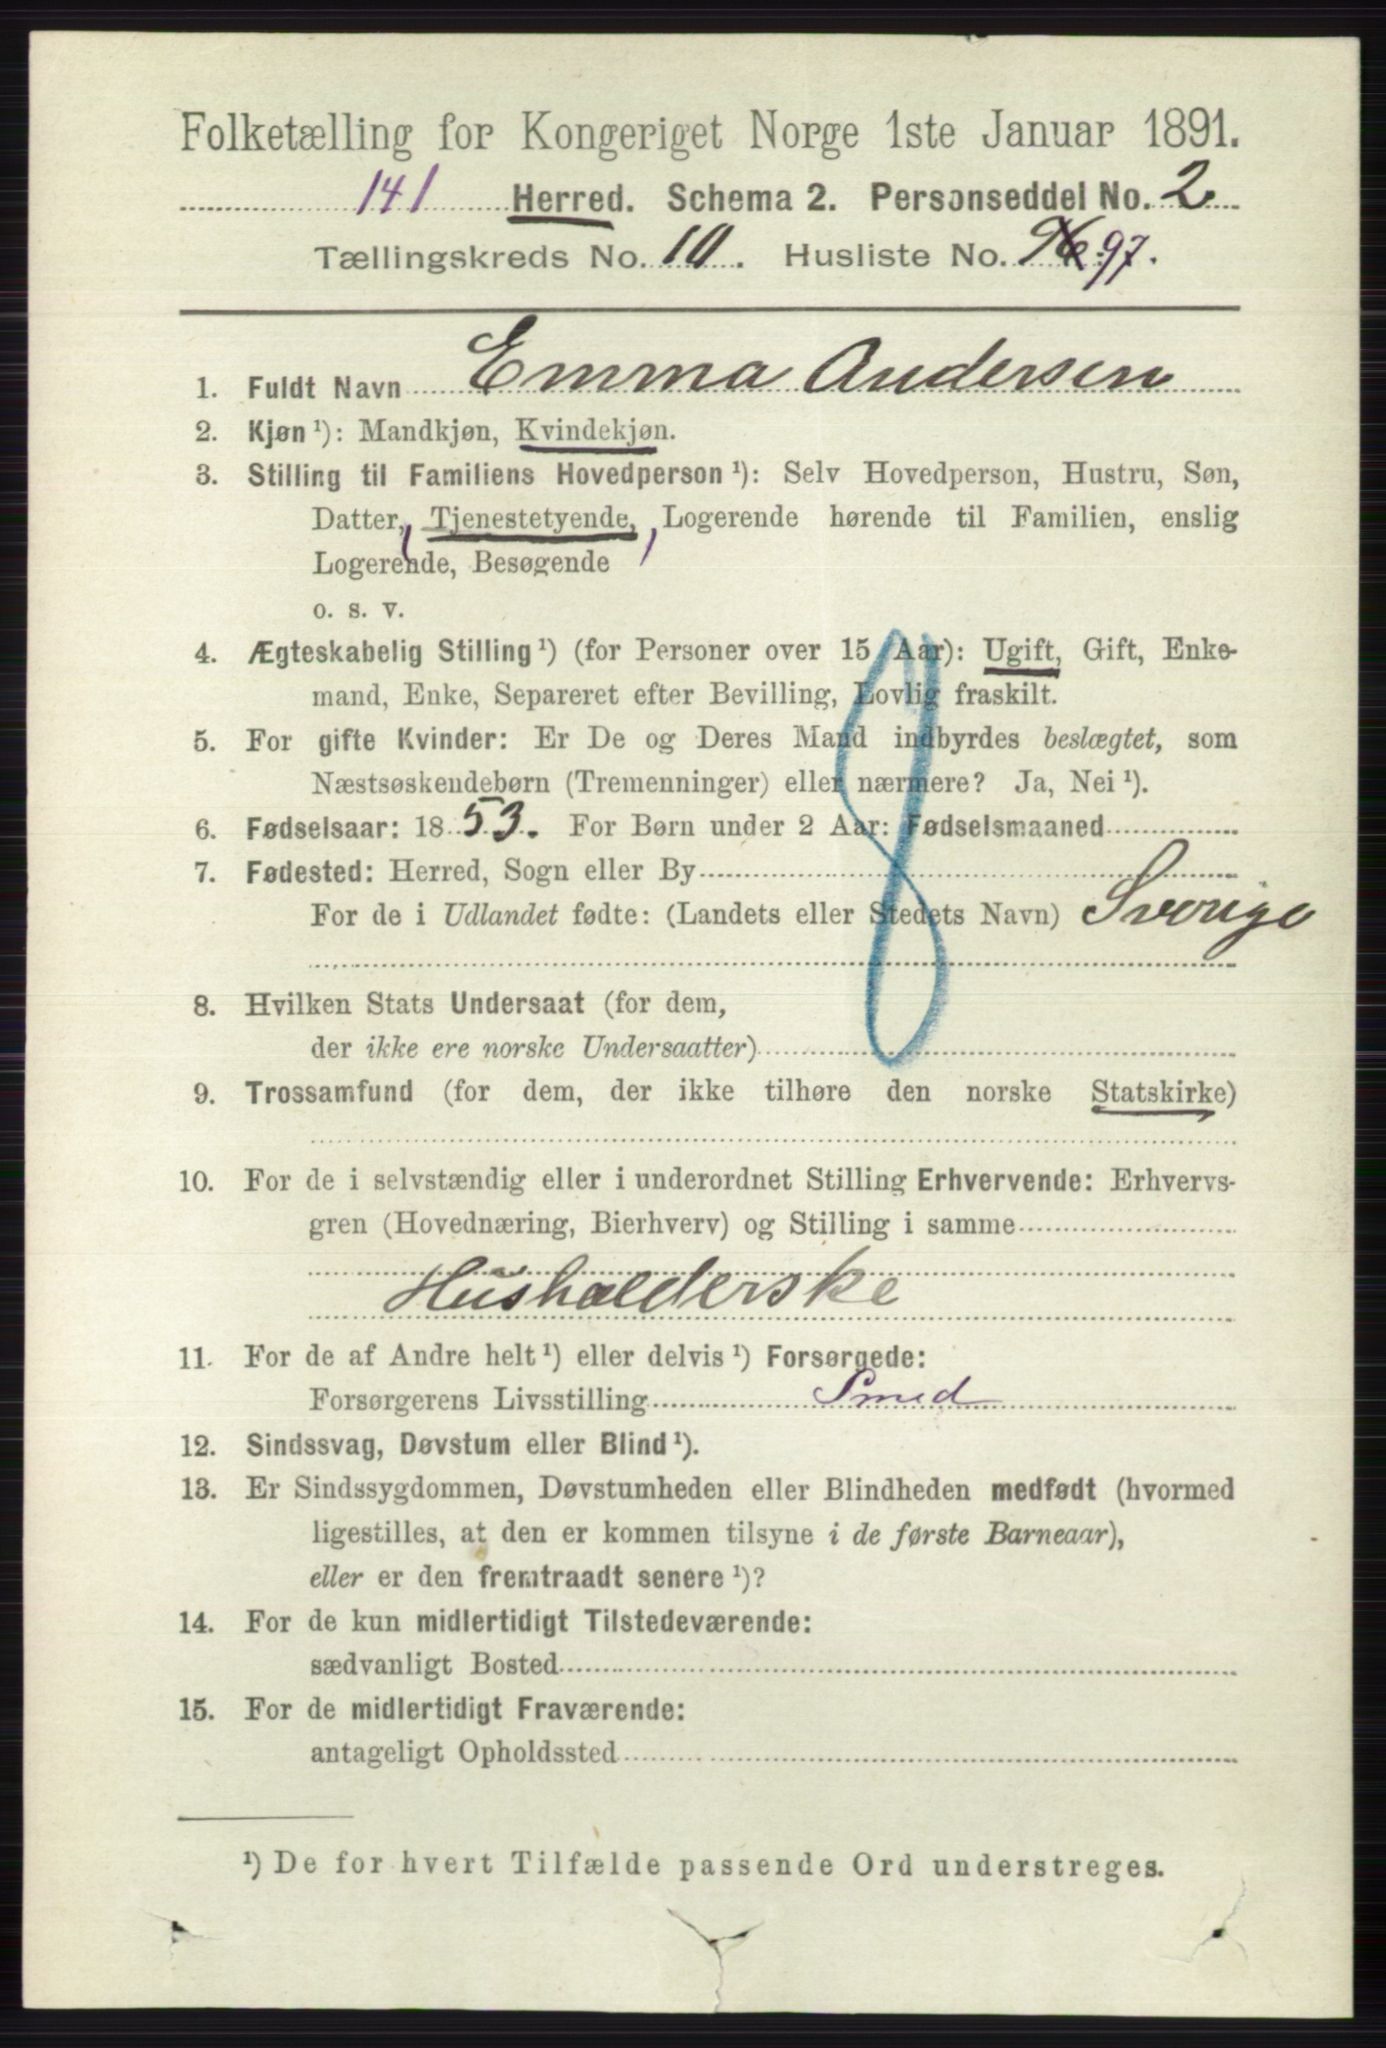 Folketælling for Kongeriget Norge 1ste Januar 1891.
141 Herred. Schema 2. Personseddel No. 2
Tællingskreds No. 10. Husliste No. 96 97.
1. Fuldt Navn Emma Andersen
2. Kjøn ¹): Mandkjøn, Kvindekjøn.
3. Stilling til Familiens Hovedperson ¹): Selv Hovedperson, Hustru, Søn,
Datter, Tjenestetyende, Logerende hørende til Familien, enslig
Logerende, Besøgende
o. s. v.
4. Ægteskabelig Stilling ¹) (for Personer over 15 Aar): Ugift, Gift, Enke-
mand, Enke, Separeret efter Bevilling, Lovlig fraskilt.
5. For gifte Kvinder: Er De og Deres Mand indbyrdes beslægtet, som
Næstsøskendebørn (Tremenninger) eller nærmere? Ja, Nei ¹).
6. Fødselsaar: 1853. For Børn under 2 Aar: Fødselsmaaned
7. Fødested: Herred, Sogn eller By
For de i Udlandet fødte: (Landets eller Stedets Navn) Sverige
8. Hvilken Stats Undersaat (for dem,
der ikke ere norske Undersaatter)
9. Trossamfund (for dem, der ikke tilhøre den norske Statskirke)
10. For de i selvstændig eller i underordnet Stilling Erhvervende: Erhvervs-
gren (Hovednæring, Bierhverv) og Stilling i samme
Husholderske
11. For de af Andre helt ¹) eller delvis ¹) Forsørgede:
Forsørgerens Livsstilling Smed
12. Sindssvag, Døvstum eller Blind ¹).
13. Er Sindssygdommen, Døvstumheden eller Blindheden medfødt (hvormed
ligestilles, at den er kommen tilsyne i de første Barneaar),
eller er den fremtraadt senere ¹)?
14. For de kun midlertidigt Tilstedeværende:
sædvanligt Bosted
15. For de midlertidigt Fraværende:
antageligt Opholdssted
¹) De for hvert Tilfælde passende Ord understreges.